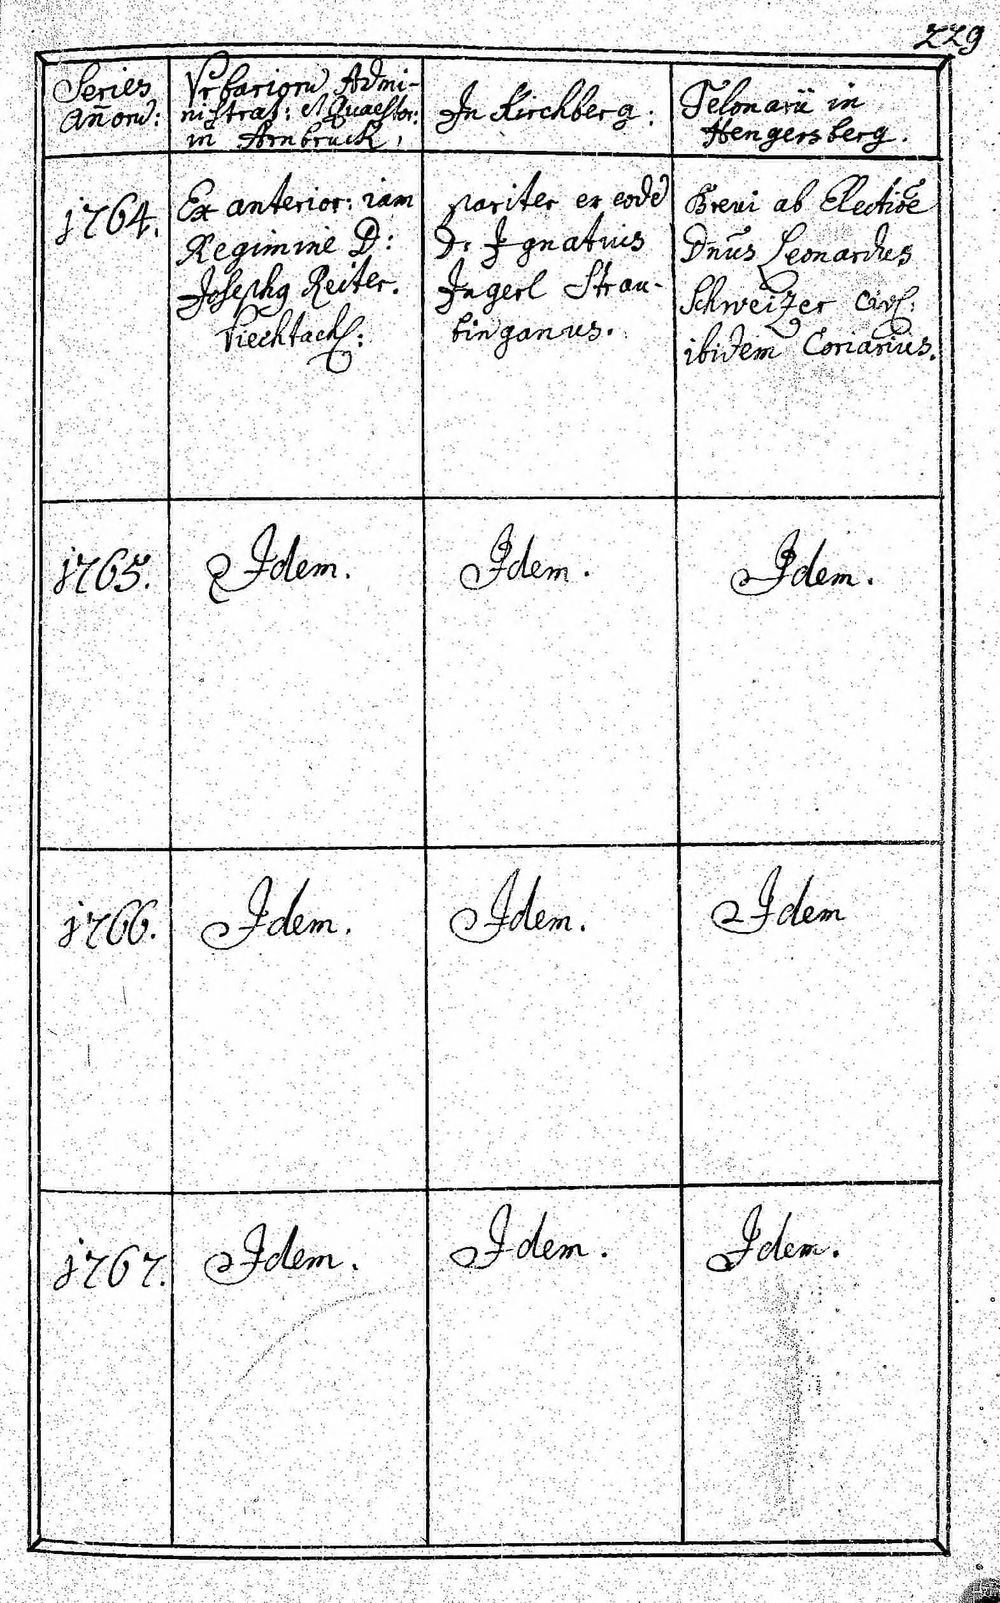 229
Series
Añorū:
Urbariorū Admi-
nistrat: et Quaestor:
in Arnbruck,
In Kirchberg:
Telonarii in
Hengersberg.
1764.
Ex anterior: iam
Regimine D:
Josephg Reiter.
Viechtach:
pariter ex eodē
D: Ignatius
Ingerl Strau-
binganus.
Brevi ab Electiōe
Dn̄us Leonardus
Schweizer Civ:
ibidem Coriarius.
1765.
Idem.
Idem.
Idem.
1766.
Idem.
Idem.
Idem
1767.
Idem.
Idem.
Idem.